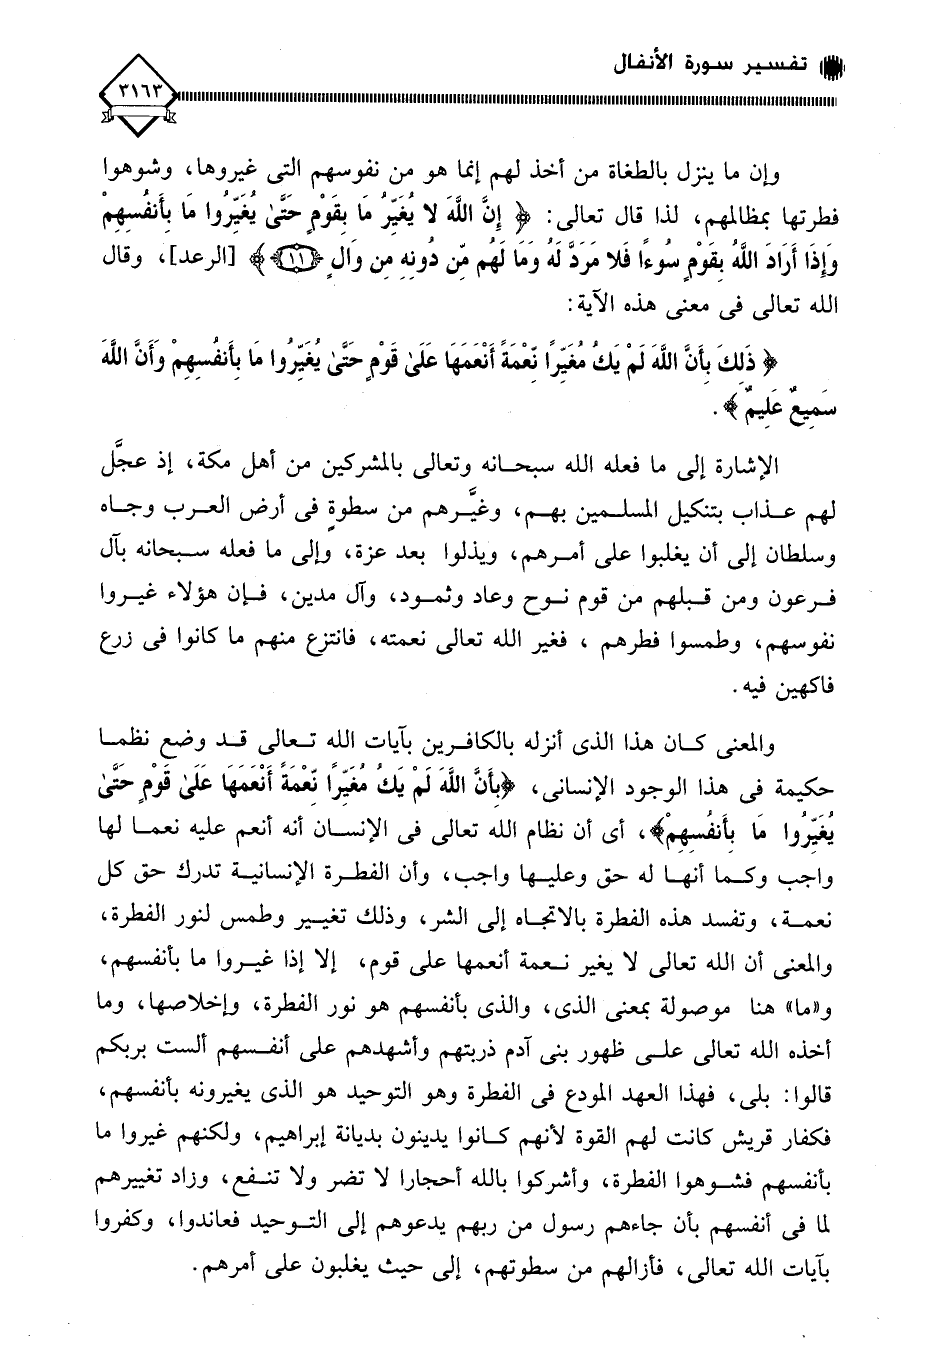 تفسير سورة الأنفال
٣١٦٣
وإن ما ينزل بالطغاة من أخذ لهم إنما هو من نفوسهم التى غيروها، وشوهوا
فطرتها بمظالمهم، لذا قال تعالى: ﴿ إِنَّ اللَّهَ لا يُغَيِّرُ مَا بِقَوْمٍ حَتَّىٰ يُغَيِّرُوا مَا بِأَنفُسِهِمْ
وَإِذَا أَرَادَ اللَّهُ بِقَوْمٍ سُوءًا فَلا مَرَدَّ لَهُ وَمَا لَهُم مِّن دُونِهِ مِن وَالٍ ﴿١١﴾ ﴾ [الرعد]، وقال
الله تعالى فى معنى هذه الآية:
﴿ ذَلِكَ بِأَنَّ اللَّهَ لَمْ يَكُ مُغَيِّرًا نِّعْمَةً أَنْعَمَهَا عَلَىٰ قَوْمٍ حَتَّىٰ يُغَيِّرُوا مَا بِأَنفُسِهِمْ وَأَنَّ اللَّهَ
سَمِيعٌ عَلِيمٌ ﴾ .
الإشارة إلى ما فعله الله سبحانه وتعالى بالمشركين من أهل مكة، إذ عجَّل
لهم عذاب بتنكيل المسلمين بهم، وغيَّرهم من سطوةٍ فى أرض العرب وجاه
وسلطان إلى أن يغلبوا على أمرهم، ويذلوا بعد عزة، وإلى ما فعله سبحانه بآل
فرعون ومن قبلهم من قوم نوح وعاد وثمود، وآل مدين، فإن هؤلاء غيروا
نفوسهم، وطمسوا فطرهم ، فغير الله تعالى نعمته، فانتزع منهم ما كانوا فى زرع
فاكهين فيه.
والمعنى كان هذا الذى أنزله بالكافرين بآيات الله تعالى قد وضع نظما
حكيمة فى هذا الوجود الإنسانى، ﴿بِأَنَّ اللَّهَ لَمْ يَكُ مُغَيِّرًا نِّعْمَةً أَنْعَمَهَا عَلَىٰ قَوْمٍ حَتَّىٰ
يُغَيِّرُوا مَا بِأَنفُسِهِمْ﴾، أى أن نظام الله تعالى فى الإنسان أنه أنعم عليه نعما لها
واجب وكما أنها له حق وعليها واجب، وأن الفطرة الإنسانية تدرك حق كل
نعمة، وتفسد هذه الفطرة بالاتجاه إلى الشر، وذلك تغيير وطمس لنور الفطرة،
والمعنى أن الله تعالى لا يغير نعمة أنعمها على قوم، إلا إذا غيروا ما بأنفسهم،
و«ما» هنا موصولة بمعنى الذى، والذى بأنفسهم هو نور الفطرة، وإخلاصها، وما
أخذه الله تعالى على ظهور بنى آدم ذريتهم وأشهدهم على أنفسهم ألست بربكم
قالوا: بلى، فهذا العهد المودع فى الفطرة وهو التوحيد هو الذى يغيرونه بأنفسهم،
فكفار قريش كانت لهم القوة لأنهم كانوا يدينون بديانة إبراهيم، ولكنهم غيروا ما
بأنفسهم فشوهوا الفطرة، وأشركوا بالله أحجارا لا تضر ولا تنفع، وزاد تغييرهم
لما فى أنفسهم بأن جاءهم رسول من ربهم يدعوهم إلى التوحيد فعاندوا، وكفروا
بآيات الله تعالى، فأزالهم من سطوتهم، إلى حيث يغلبون على أمرهم.